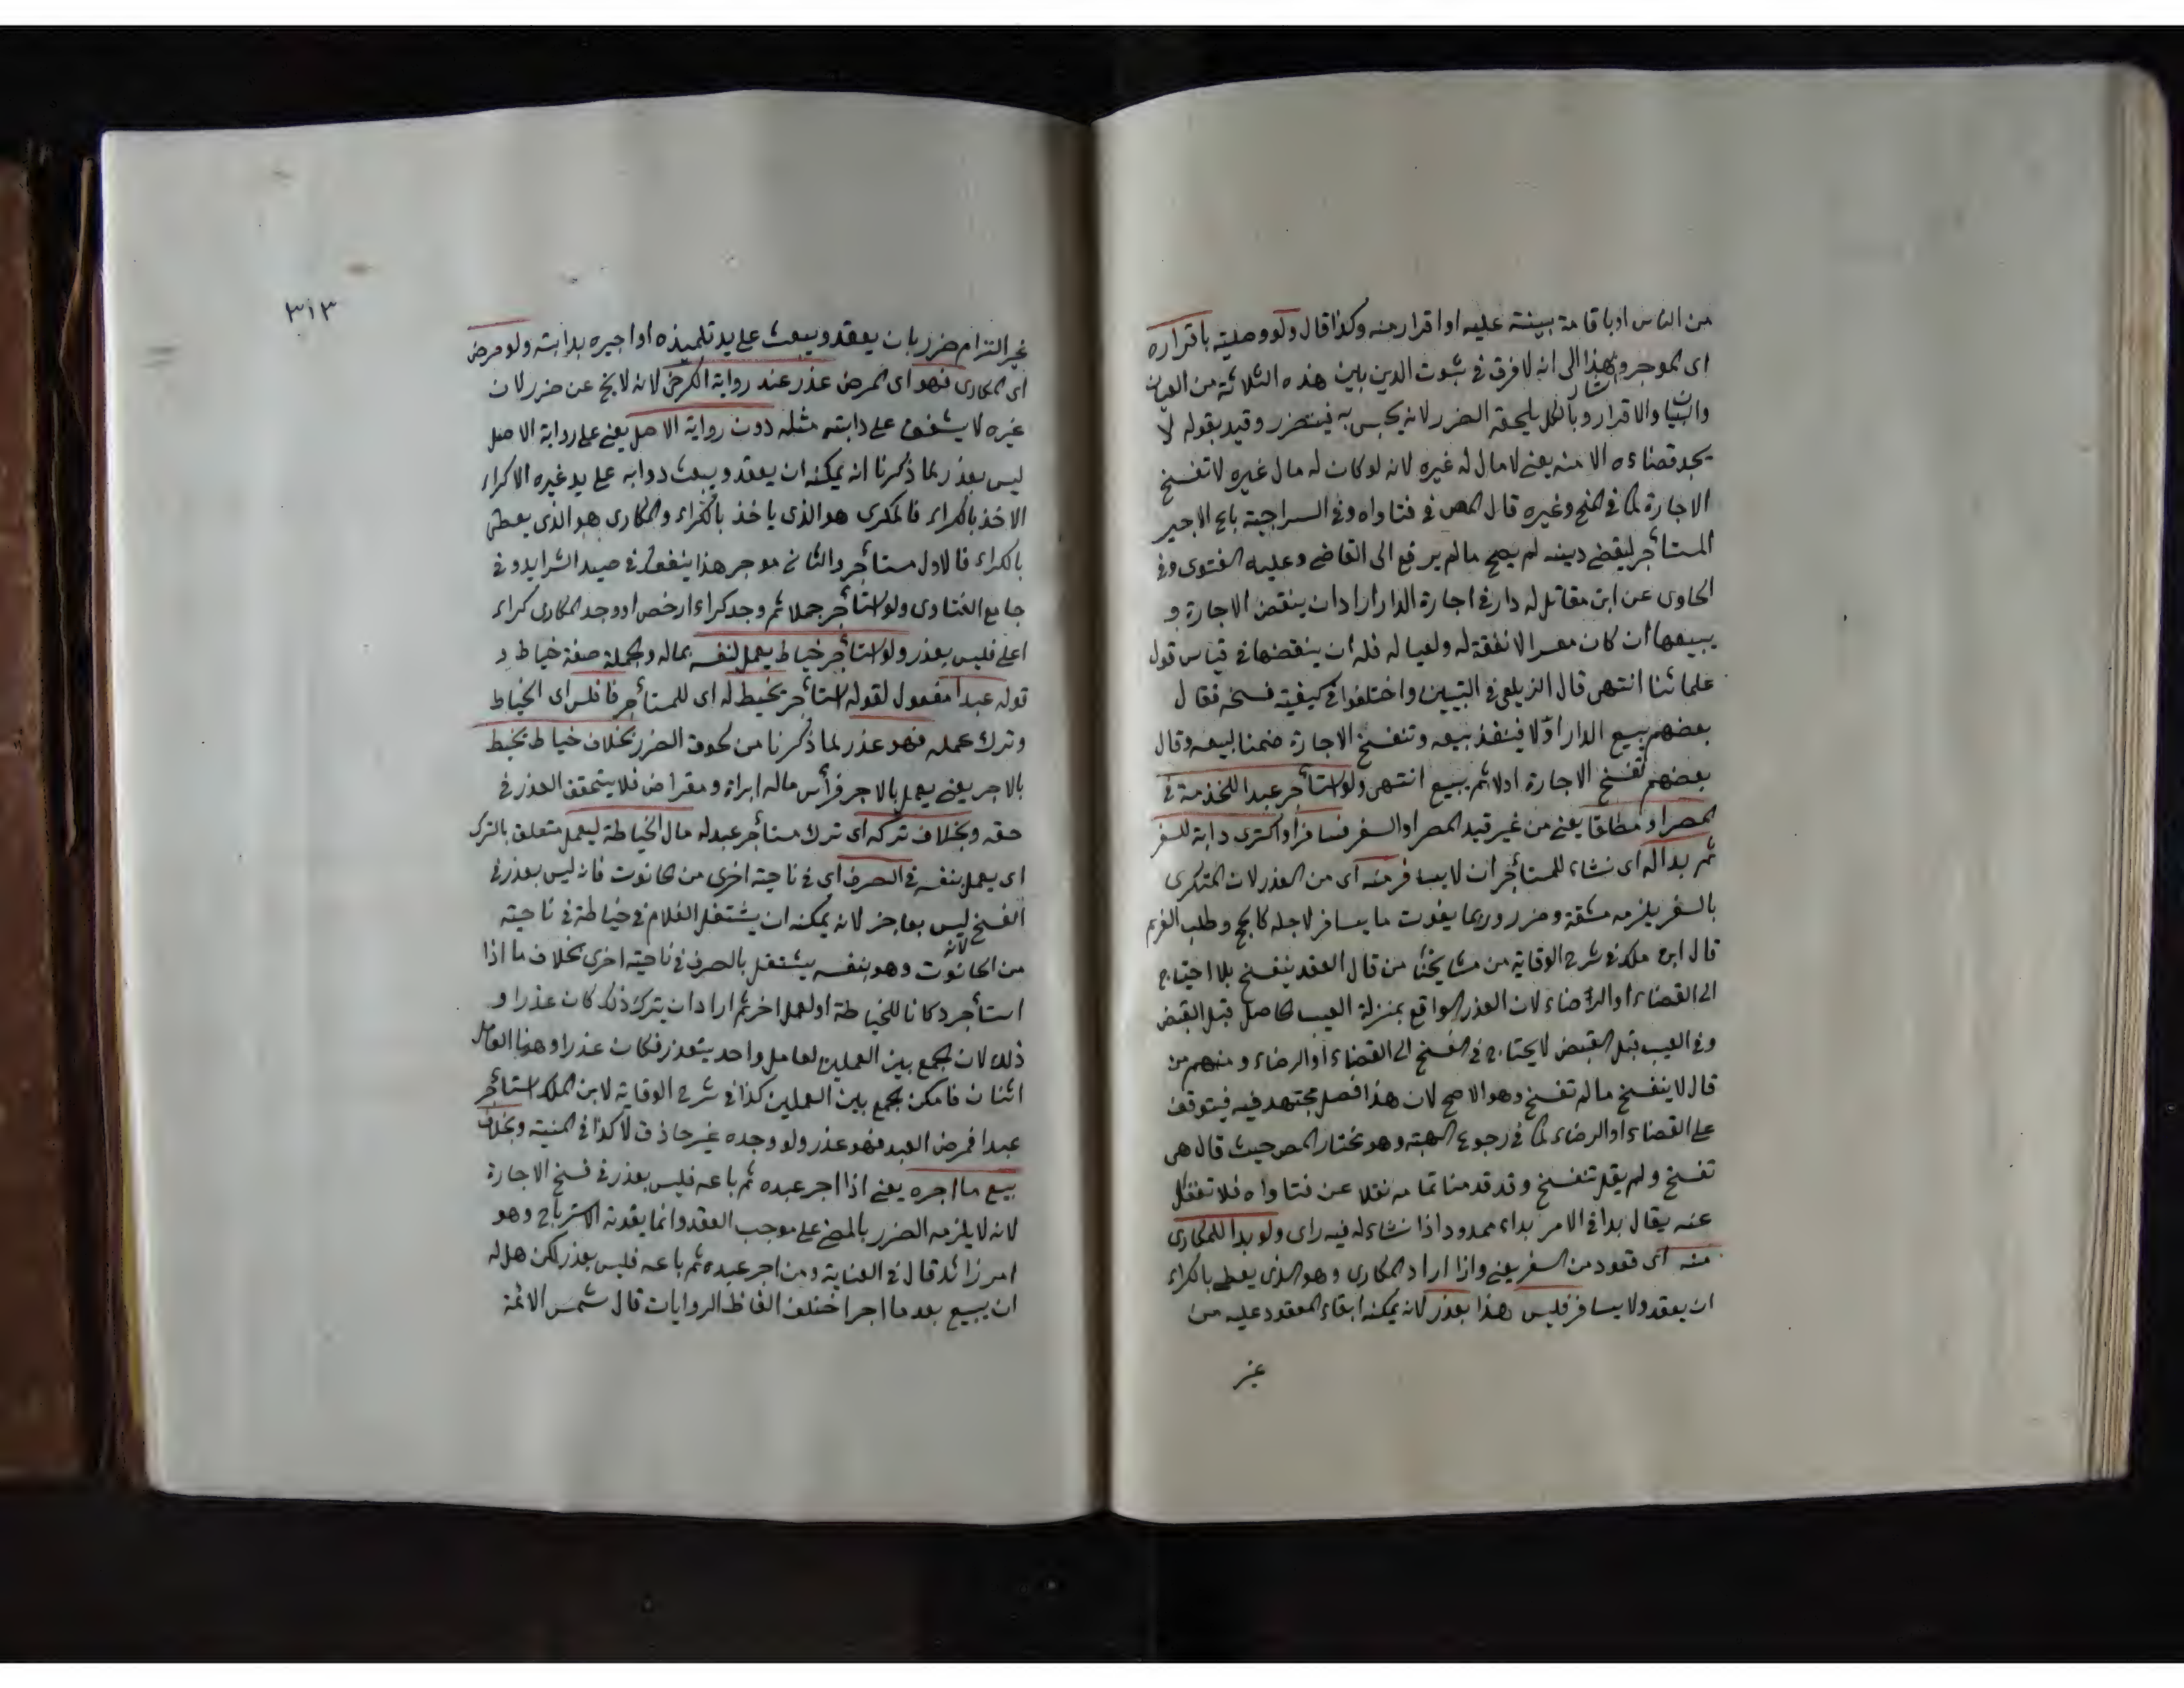 من الناس او باقامة بينة عليه او اقرار منه وكذا قال ولو وصلية باقراره
اى الموجر وبهذا اشار الى انه لا فرق في ثبوت الدين بين هذه الثلاثة من العيان
والبيان والاقرار وبالكل يلحقه الضرر لانه يحبس به فيتضرر وقيد بقوله لا
يجد قضاءه الا منه يعنى لا مال له غيره لانه لو كان له مال غيره لا تفسخ
الاجارة كما في المنح وغيره قال المص في فتاواه وفي السراجية باع الاجير
المستأجر ليقضى دينه لم يصح ما لم يرفع الى القاضى وعليه الفتوى وفي
الحاوى عن ابن مقاتل له دار في اجارة الدار اراد ان ينقض الاجارة و
يبيعها ان كان معسرا لا نفقة له ولعياله فله ان ينقضها في قياس قول
علمائنا انتهى قال الزيلعى في التبيين واختلفوا في كيفية فسخه فقال
بعضهم يبيع الدار اوّلا فينفذ بيعه وتنفسخ الاجارة ضمنا لبيعه وقال
بعضهم تفسخ الاجارة اولا ثم يبيع انتهى ولو استأجر عبدا للخدمة في
المصر او مطلقا يعنى من غير قيد المصر او السفر فسافر او اكترى دابة للسفر
ثم بدا له اى نشاء للمستأجر ان لا يسافر منه اى من العذر لان المتكرى
بالسفر يلزمه مشقة وضرر وربما يفوت ما يسافر لاجله كالحج وطلب الغريم
قال ابن ملك في شرح الوقاية من مشايخنا من قال العقد ينفسخ بلا احتياج
الى القضاء او الرضاء لان العذر الواقع بمنزلة العيب الحاصل قبل القبض
وفي العيب قبل القبض لا يحتاج في الفسخ الى القضاء او الرضاء ومنهم من
قال لا ينفسخ ما لم تفسخ وهو الاصح لان هذا فصل مجتهد فيه فيتوقف
على القضاء او الرضاء كما في رجوع الهبة وهو مختار المص حيث قال هى
تفسخ ولم يقل تنفسخ وقد قدمنا تمامه نقلا عن فتاواه فلا تغفل
عنه يقال بدا في الامر بداء ممدود اذا نشاء له فيه راى ولو بدا للمكارى
منه اى قعود من السفر يعنى واذا اراد المكارى وهو الذى يعطى بالكراء
ان يعقد ولا يسافر فليس هذا بعذر لانه يمكنه ابقاء المعقود عليه من
غير
٣١٣
غير التزام ضرر بان يعقد ويبعث على يد تلميذه او اجيره بدابته ولو مرض
اى المكارى فهو اى المرض عذر عند رواية الكرخى لانه لا يخ عن ضرر لان
غيره لا يشفق على دابته مثله دون رواية الاصل يعنى على رواية الاصل
ليس بعذر لما ذكرنا انه يمكنه ان يعقد ويبعث دوابه على يد غيره الاكراء
الاخذ بالكراء فالمكرى هو الذى ياخذ بالكراء والمكارى هو الذى يعطى
بالكراء فالاول مستأجر والثانى موجر هذا ينفعك في صيد الشرايد وفي
جامع الفتاوى ولو استأجر جملا ثم وجد كراء ارخص او وجد المكارى كراء
اعلى فليس بعذر ولو استأجر خياط يعمل لنفسه بماله والجملة صفة خياط و
قوله عبدا مفعول لقوله استأجر يخيط له اى للمستأجر فافلس اى الخياط
وترك عمله فهو عذر لما ذكرنا من لحوق الضرر بخلاف خياط يخيط
بالاجر يعنى يعمل بالاجر فرأس ماله ابراة ومقراض فلا يتحقق العذر في
حقه وبخلاف تركه اى ترك مستأجر عبد له مال الخياطة ليعمل متعلق بالترك
اى يعمل بنفسه في الصرف اى في ناحية اخرى من الحانوت فانه ليس بعذر في
الفسخ لانه ليس بعاجز لانه يمكنه ان يشتغل الغلام في خياطة في ناحية
من الحانوت وهو بنفسه يشتغل بالصرف في ناحية اخرى بخلاف ما اذا
استأجر دكانا للخياطة او لعمل اخر ثم اراد ان يترك ذلك كان عذرا و
ذلك لان الجمع بين العملين لعامل واحد يتعذر فكان عذرا وهنا العامل
اثنان فامكن الجمع بين العملين كذا في شرح الوقاية لابن الملك استأجر
عبدا فمرض العبد فهو عذر ولو وجده غير حاذق لا كذا في المنية وبخلاف
بيع ما اجره يعنى اذا اجر عبده ثم باعه فليس بعذر في فسخ الاجارة
لانه لا يلزمه الضرر بالمضى على موجب العقد وانما يفوته الاسترباح وهو
امر زائد قال في العناية ومن اجر عبده ثم باعه فليس بعذر لكن هل له
ان يبيع بعد ما اجر اختلف الفاظ الروايات قال شمس الائمة